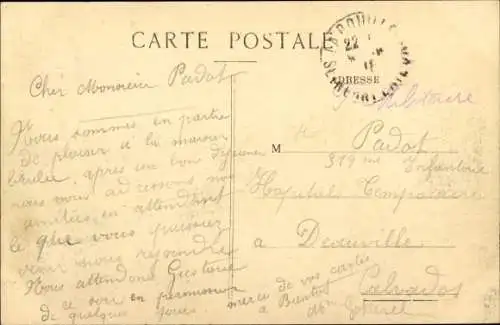 CARTE POSTALE
22
ADRESSE
Cher Monsieur Padot
Nous sommes en partie
de plaisir à la maison
après un bon déjeuner
nous vous adressons nos
amitiés en attendant
que vous puissiez
venir nous rejoindre
Nous attendons
ce soir en permission
de quelques jours.
merci de vos cartes
à Bientôt
M Padot
319 me Infanterie
Hopital Temporaire
a Deauville
Calvados